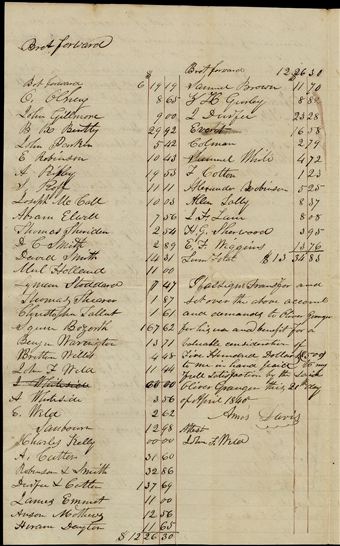 Brot forward
Brot forward 6 19 19
O. Olney 8 65
John Gillmore 9 00
29 92
John Parkln 5 42
E Robinson 10 43
A Ripley 19 53
11 11
Joseph Mc Call 10 03
Abram Elwell 7 56
Thomas Sheriden 2 54
D C Smith 2 89
David Smith 14 31
Holland 11 00
Lyman Stoddard 8 47
Thomas Shearer 1 87
Christopher Tallent 1 61
Squire Bozorth 16 7 62
Benjn Warrington 13 71
Willes 4 48
John F Weld 11 44
Whiteside 60 00
A Whiteside 3 56
E. Weld 2 62
Sanbourn 12 98
Charles Kelly 00 00
A. Cutten 31 60
Robinson & Smith 32 86
Durfee & Cotten 13 7 69
James Emmet 11 00
Anson Mathews 12 56
Hiram Dayton 11 65
$ 12 26 30
Brot forward 12 26 30
Samuel Brown 11 70
H Gurley 8 82
Durfee 23 28
Evert 16 58
Colman 2 79
Samuel White 4 72
Cotten 1 23
Alexander Robinson 5 25
Allen Tally 8 37
8 08
H. G. Sherwood 3 95
E. F. Wiggins 13 76
Sum Total $ 13 34 83
I Transfer and
set over the above account
and demands to Oliver Granger
for his use and benefit for a
valuable consideration of
Five Hundred Dollars $500
to me in hand paid to my
full Satisfaction by the said
Oliver Granger this 21st day
of April 1840
Amos Davis
Attest
John F. Weld